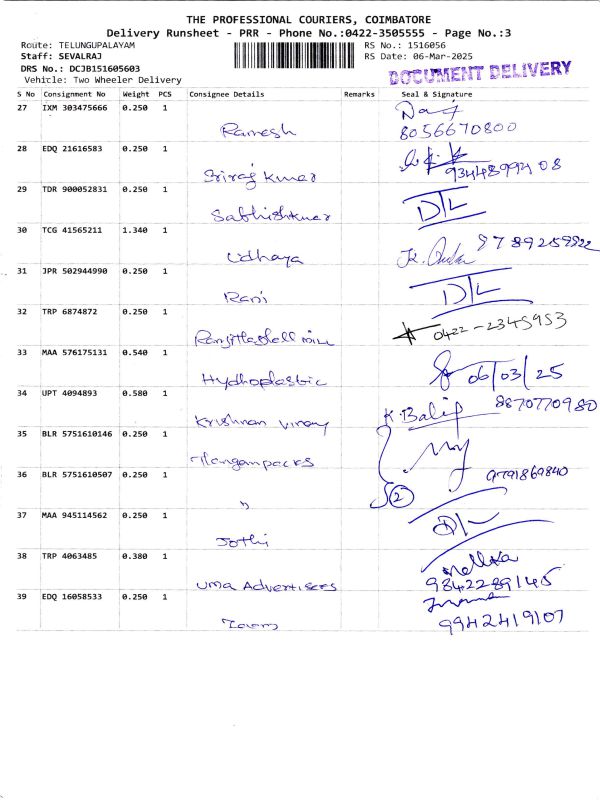 THE PROFESSIONAL COURIERS, COIMBATORE
Delivery Runsheet - PRR - Phone No.:0422-3505555 - Page No.:3
Route: TELUNGUPALAYAM RS No.: 1516056
Staff: SEVALRAJ RS Date: 06-Mar-2025
DRS No.: DCJB151605603
Vehicle: Two Wheeler Delivery
DOCUMENT DELIVERY
S No Consignment No Weight PCS Consignee Details Remarks Seal & Signature
27 IXM 303475666 0.250 1
Ramesh 8056670800
28 EDQ 21616583 0.250 1
Sriraj Kumar
29 TDR 900052831 0.250 1
Sabhishkumar D/L
30 TCG 41565211 1.340 1
Udhaya
31 JPR 502944990 0.250 1
Rani D/L
32 TRP 6874872 0.250 1
0422-2345953
33 MAA 576175131 0.540 1
Hydhoplastic 06/03/25
34 UPT 4094893 0.580 1
Krishnan Vinay K.Balif 8870770980
35 BLR 5751610146 0.250 1
36 BLR 5751610507 0.250 1
" 2 9791869840
37 MAA 945114562 0.250 1
Jothi D/L
38 TRP 4063485 0.380 1
Uma Advertisers 9342289145
39 EDQ 16058533 0.250 1
9942419107